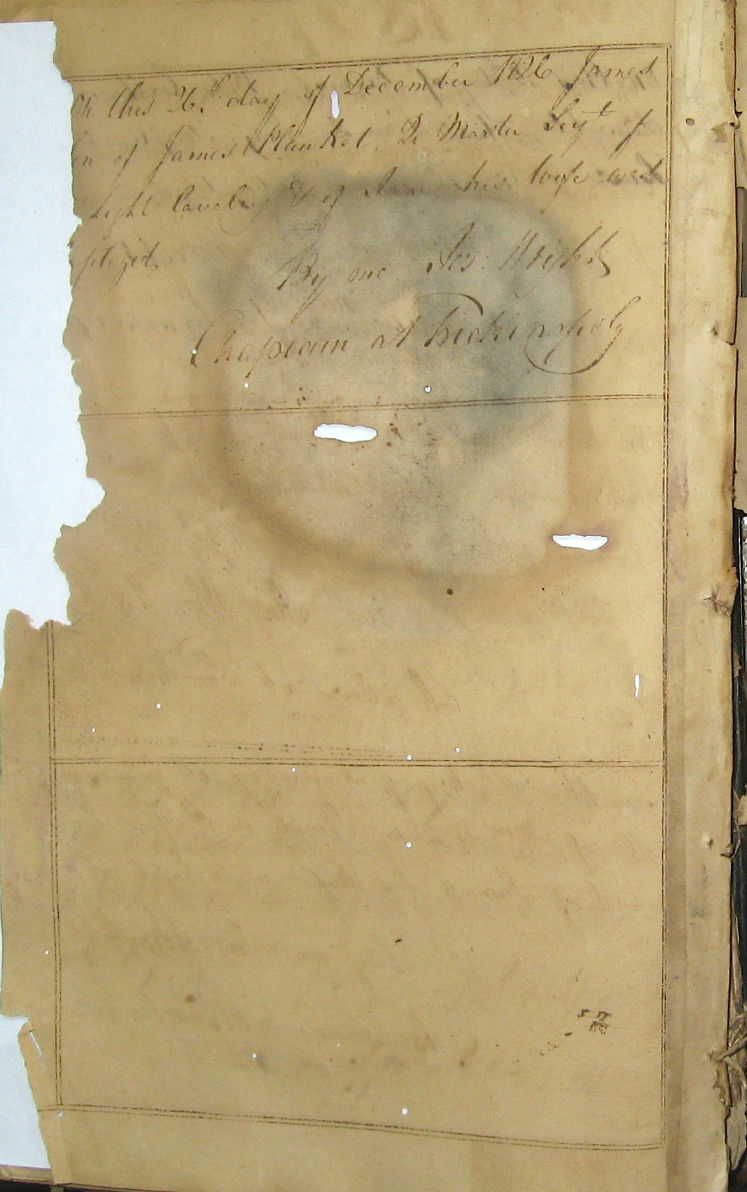 On this 26th day of December 1826 James
on of James Plunket Qr Master Sergt of
Light Cavalry & of his wife was
ptized.
By me Jos: Wright
Chaplain at Trichinopoly